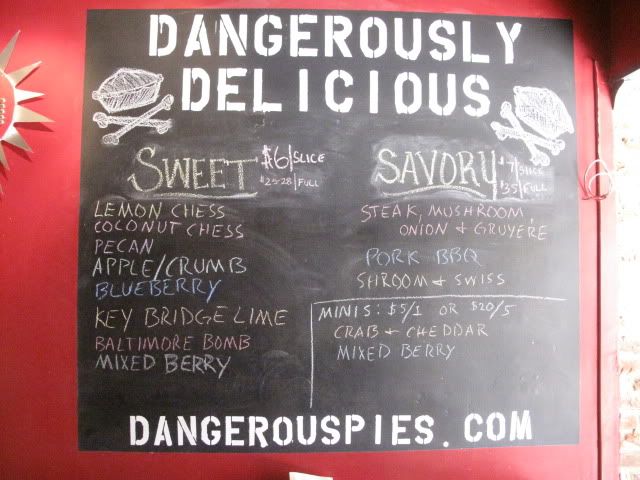 DANGEROUSLY
DELICIOUS
SWEET $6/SLICE
$25-28/FULL
LEMON CHESS
COCONUT CHESS
PECAN
APPLE/CRUMB
BLUEBERRY
KEY BRIDGE LIME
BALTIMORE BOMB
MIXED BERRY
SAVORY $7/SLICE
$35/FULL
STEAK, MUSHROOM
ONION & GRUYERE
PORK BBQ
SHROOM & SWISS
MINIS: $5/1 OR $20/5
CRAB & CHEDDAR
MIXED BERRY
DANGEROUSPIES.COM